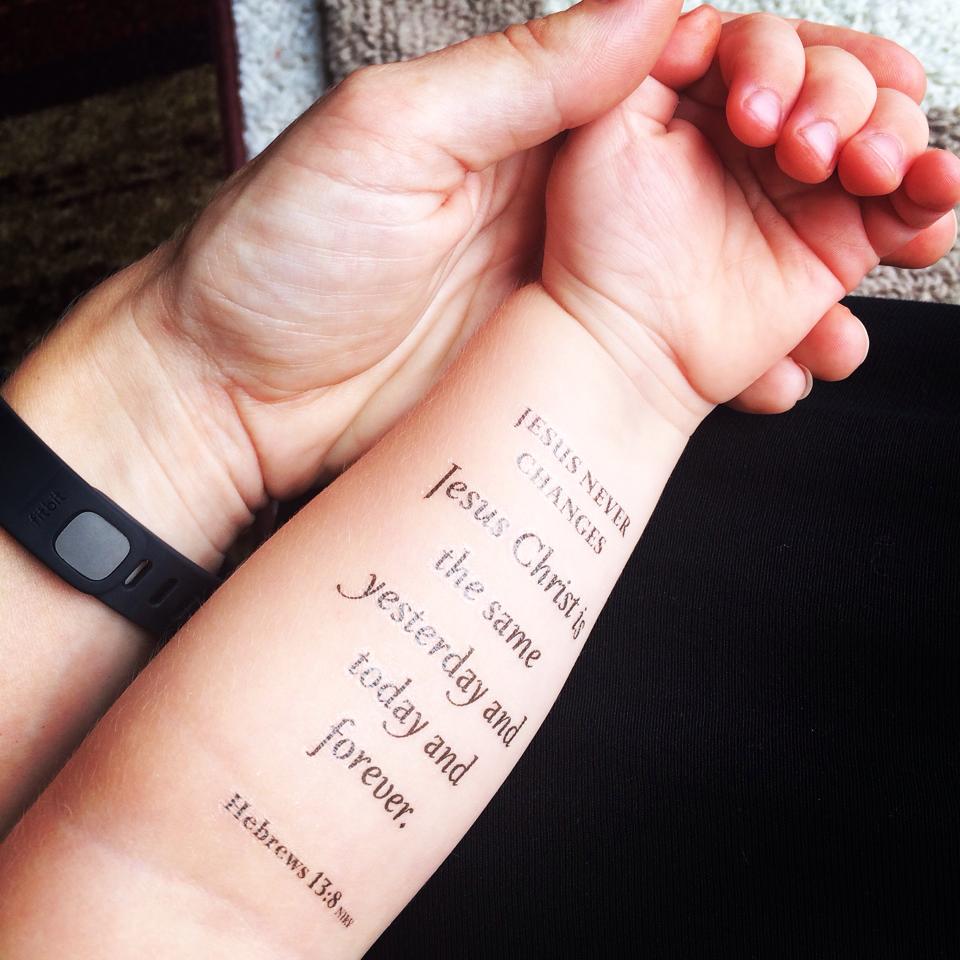 JESUS NEVER
CHANGES
Jesus Christ is
the same
yesterday and
today and
forever.
Hebrews 13:8 NIRV
fitbit